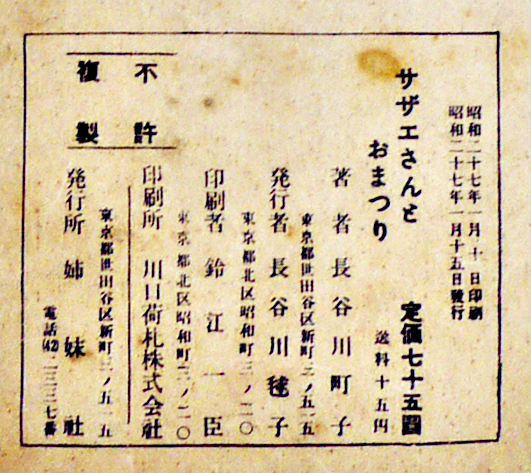 昭和二十七年一月十日印刷
昭和二十七年一月十五日發行
サザエさんと
おまつり
定価七十五圓
送料十五円
著者 長谷川町子
東京都世田谷区新町三ノ五一五
発行者 長谷川毬子
東京都北区昭和町三ノ二〇
印刷者 鈴江一臣
東京都北区昭和町三ノ二〇
印刷所 川口荷札株式会社
不許
複製
東京都世田谷区新町三ノ五一五
発行所 姉妹社
電話(42)二三三七番